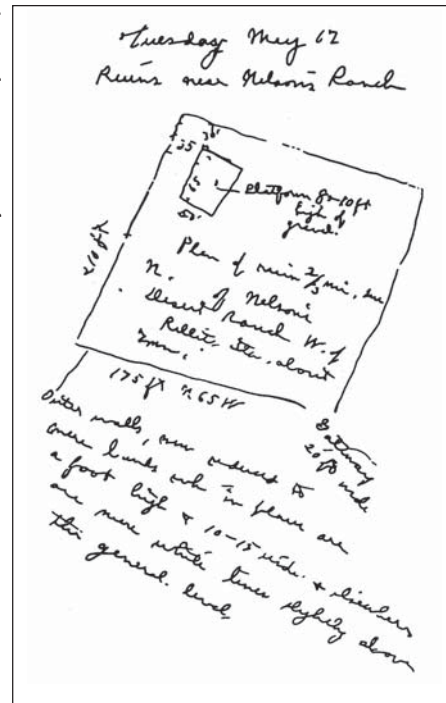 Tuesday May 12
Ruins near Nelson's Ranch
30'
35
50'
Platform 8-10 ft
high of
ground.
210 ft
Plan of ruin 2/3 mi,
N. of Nelson's
Desert Ranch W. of
Rillito, Sta. about
2 mi.
175 ft N 65 W
Gateway
20 ft wide
Outer walls, now reduced to
mere lines wh in places are
a foot high & 10-15 wide. & elsewhere
are mere white lines slightly above
the general level